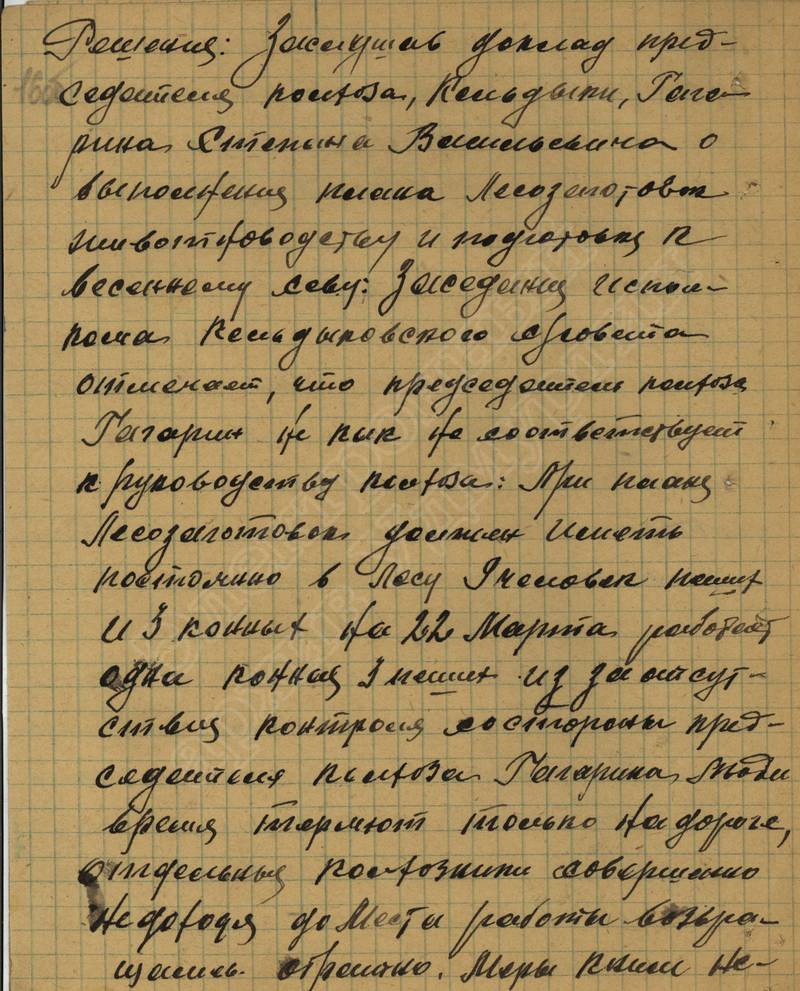 Решения: Заслушав доклад пред-
седателя колхоза, Кельдыки, Гага-
рина Степана Васильевича о
выполнения плана Лесозаготовок
животноводству и подготовки к
весеннему севу: Заседания испол-
кома Кельдыковского с/совета
отмечает, что председатель колхоза
Гагарин не как не соответствует
к руководству колхоза: При плане
Лесозаготовок должен иметь
постоянно в лесу 9 человек пеших
и 3 конных на 22 Марта работает
одна конная 3 пеших из за отсут-
ствия контроля состороны пред-
седателя колхоза Гагарина люди
время теряют только на дороге,
отдельныя колхозники совершенно
недоходя до Места работы возвра-
щались обратно. Меры к ним не-